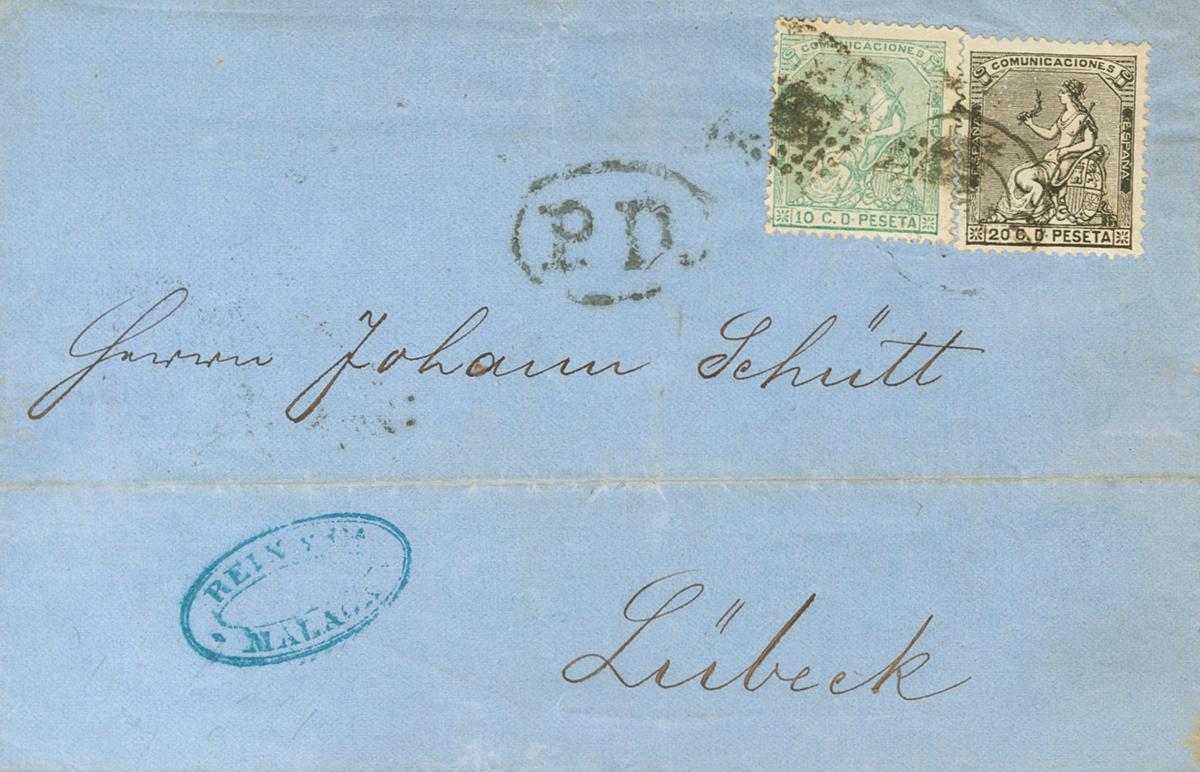 COMUNICACIONES
ESPAÑA
10 C. D. PESETA
COMUNICACIONES
ESPAÑA
ESPAÑA
20 C. D. PESETA
P.D.
Herrn Johann Schütt
REIN Y
MALAGA
Lübeck